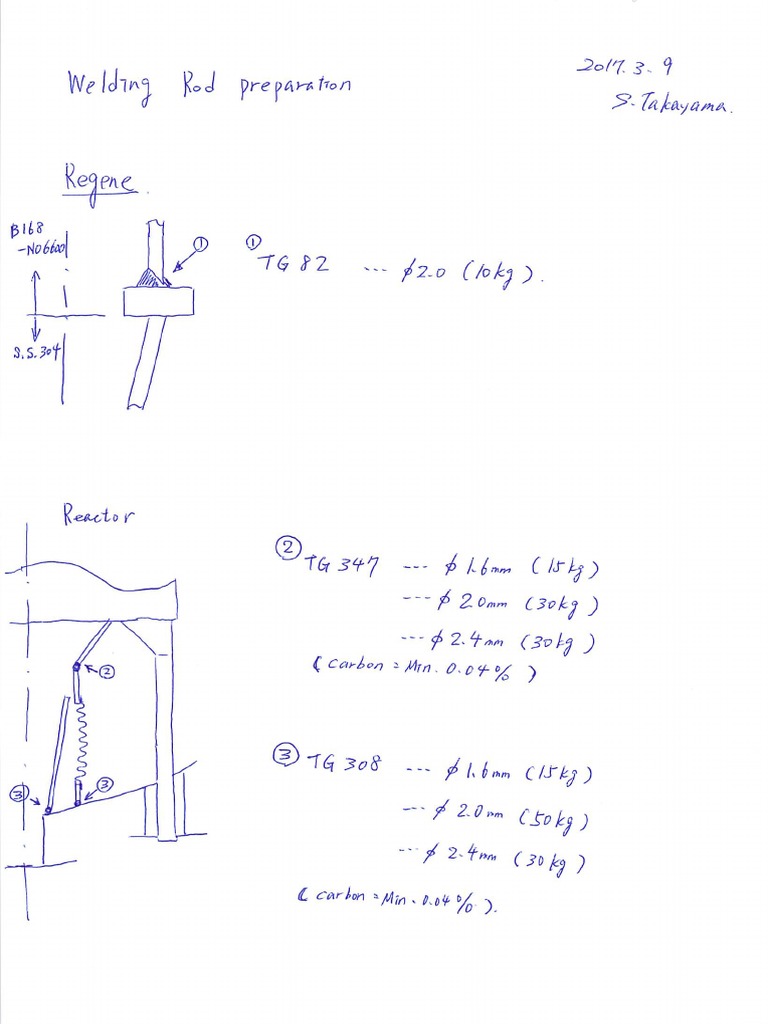 Welding Rod preparation
2017.3.9
S.Takayama.
Regene.
B168
-N06600
①
① TG 82 --- φ2.0 (10kg).
S.S.304
Reactor
② TG 347 --- φ1.6mm (15kg)
--- φ2.0mm (30kg)
--- φ2.4mm (30kg)
(carbon = Min. 0.04%)
②
③ TG 308 --- φ1.6mm (15kg)
③
③
--- φ2.0mm (50kg)
--- φ2.4mm (30kg)
(carbon = Min. 0.04%).